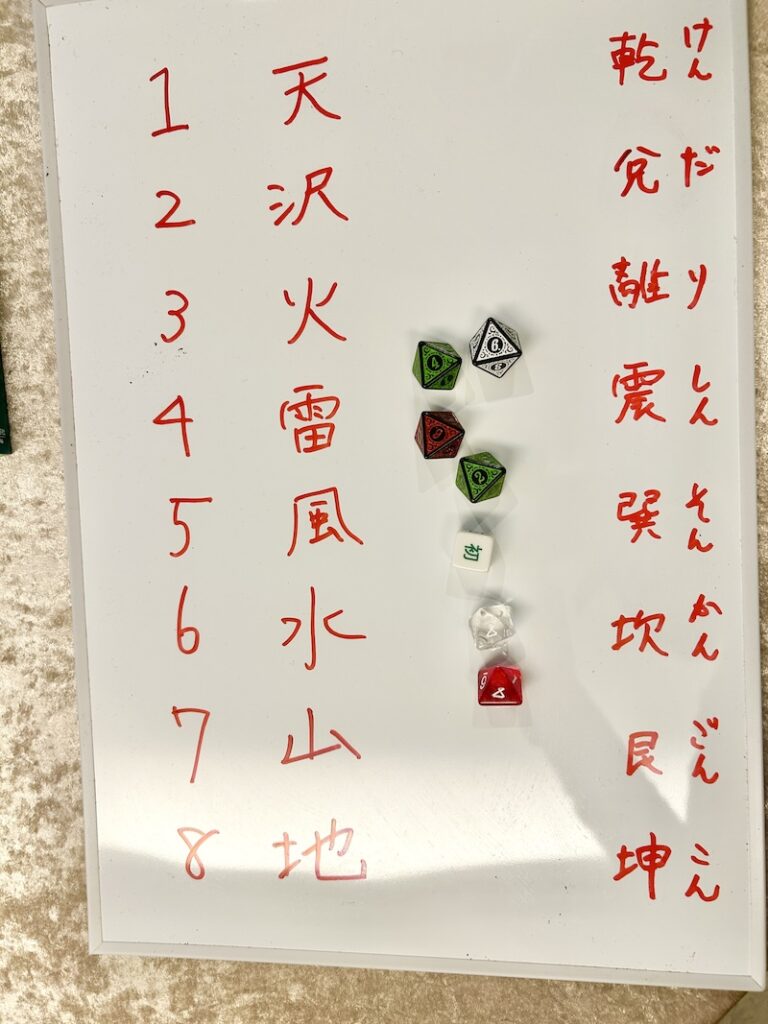 1 天 乾 けん
2 沢 兌 だ
3 火 離 り
4 雷 震 しん
5 風 巽 そん
6 水 坎 かん
7 山 艮 ごん
8 地 坤 こん
6
4
2
初
8